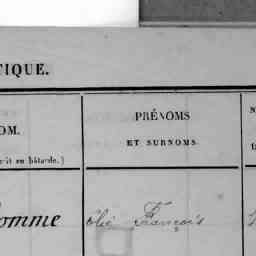 TIQUE.
OM. PRÉNOMS N
ET SURNOMS.
rit en bâtarde.)
omme Elie François